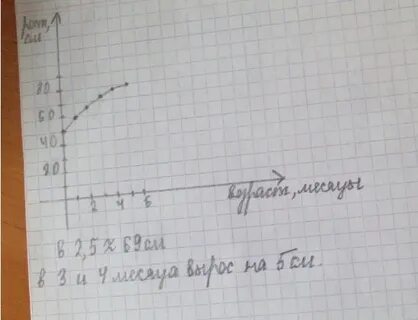 рост,
см
80
60
40
20
2 4 6
возраст, месяцы
в 2,5 ≈ 69 см
в 3 и 4 месяца вырос на 5 см.